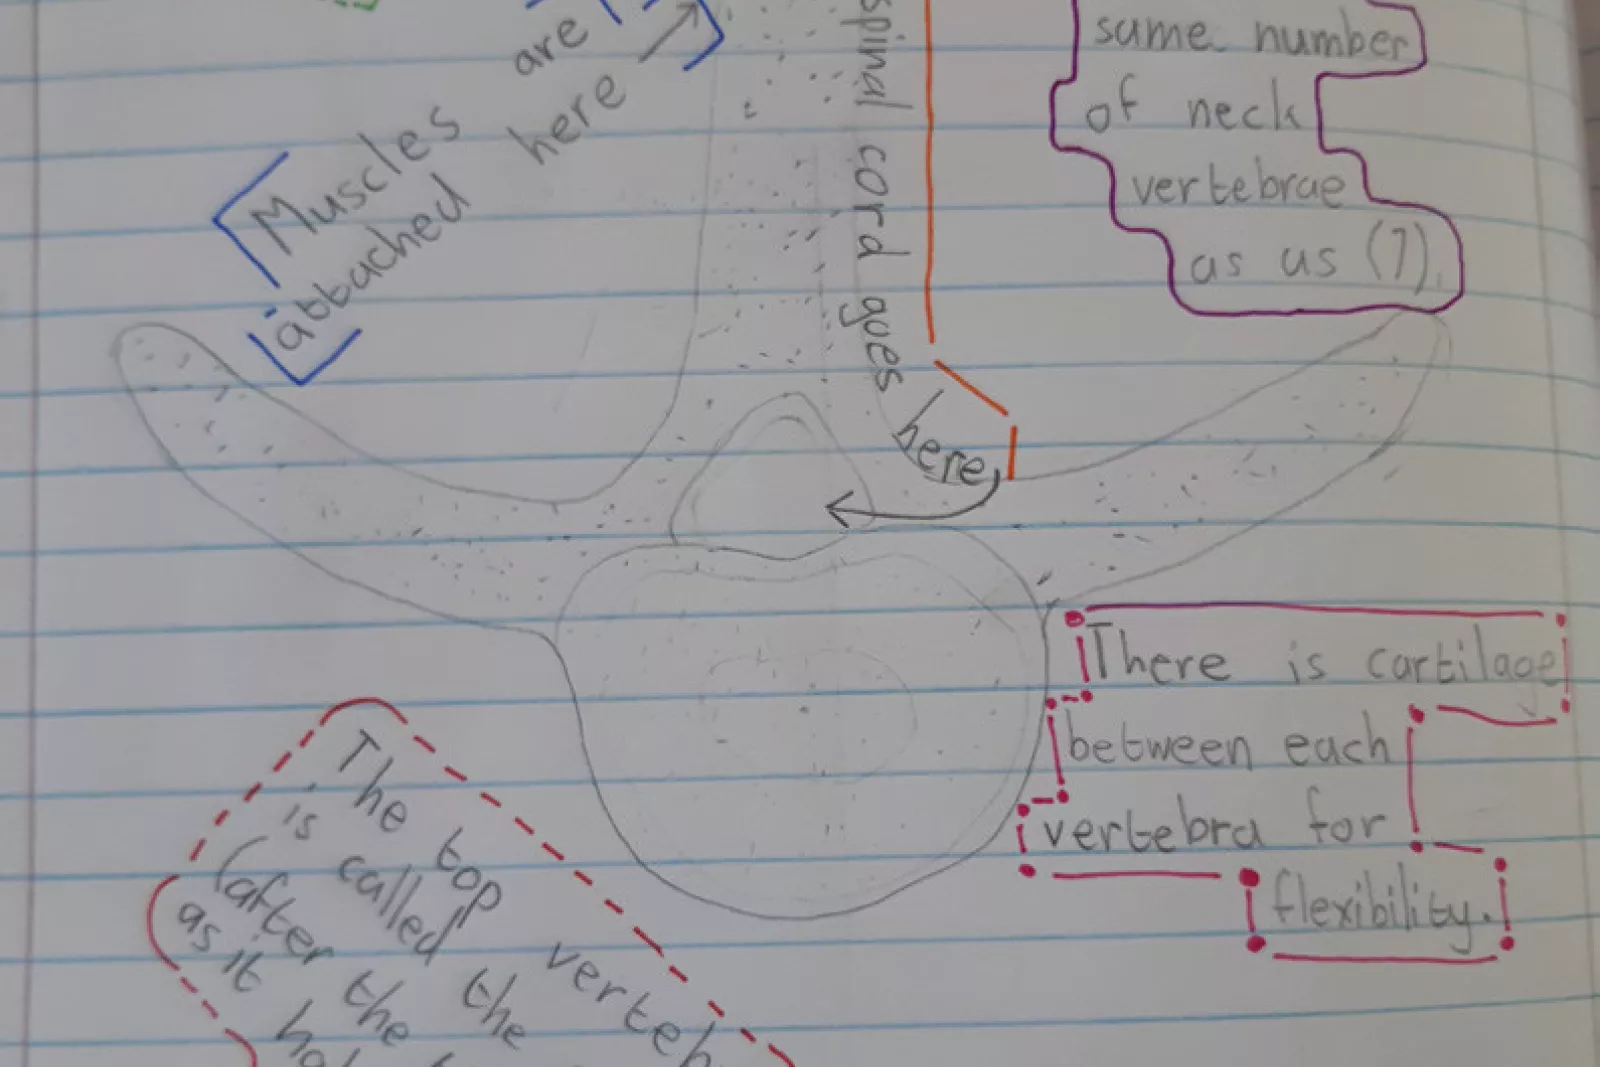 Muscles are
attached here
spinal cord goes here
same number
of neck
vertebrae
as us (7).
There is cartilage
between each
vertebra for
flexibility.
The top
is called the
(after the
as it